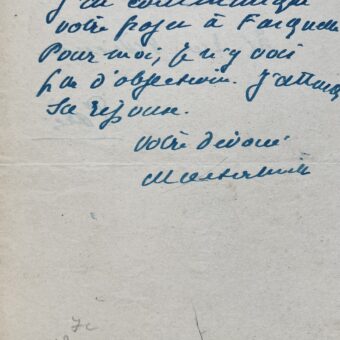 J'ai communiqué
votre projet à Fasquelle
Pour moi, je n'y vois
pas d'objection. J'attends
sa réponse.
votre dévoué
Maeterlinck